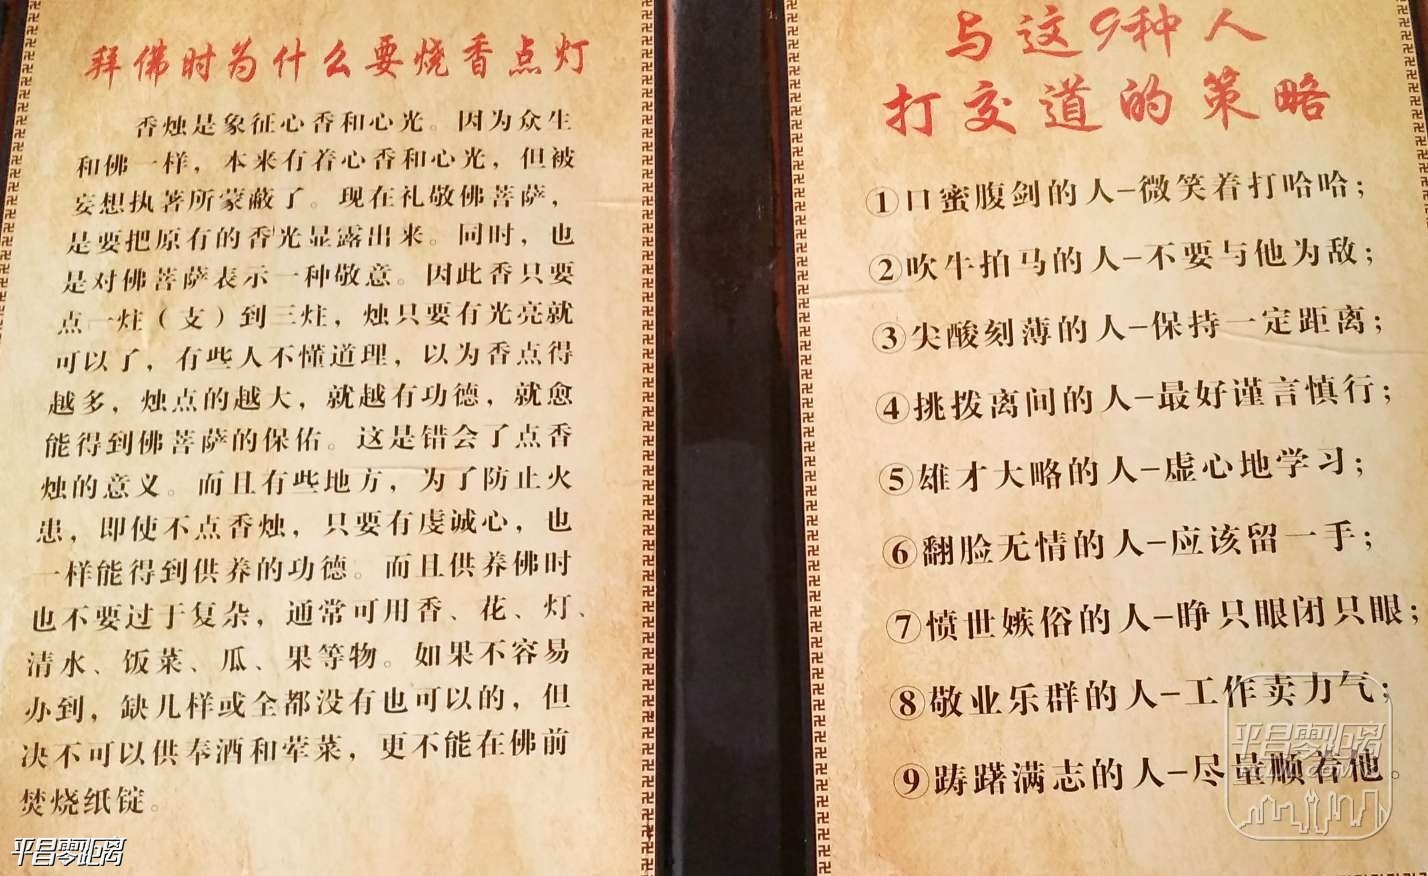 拜佛时为什么要烧香点灯
香烛是象征心香和心光。因为众生
和佛一样，本来有着心香和心光，但被
妄想执著所蒙蔽了。现在礼敬佛菩萨，
是要把原有的香光显露出来。同时，也
是对佛菩萨表示一种敬意。因此香只要
点一炷（支）到三炷，烛只要有光亮就
可以了，有些人不懂道理，以为香点得
越多，烛点的越大，就越有功德，就愈
能得到佛菩萨的保佑。这是错会了点香
烛的意义。而且有些地方，为了防止火
患，即使不点香烛，只要有虔诚心，也
一样能得到供养的功德。而且供养佛时
也不要过于复杂，通常可用香、花、灯、
清水、饭菜、瓜、果等物。如果不容易
办到，缺几样或全都没有也可以的，但
决不可以供奉酒和荤菜，更不能在佛前
焚烧纸锭。
平昌零距离
与这9种人
打交道的策略
①口蜜腹剑的人-微笑着打哈哈；
②吹牛拍马的人-不要与他为敌；
③尖酸刻薄的人-保持一定距离；
④挑拨离间的人-最好谨言慎行；
⑤雄才大略的人-虚心地学习；
⑥翻脸无情的人-应该留一手；
⑦愤世嫉俗的人-睁只眼闭只眼；
⑧敬业乐群的人-工作卖力气；
⑨踌躇满志的人-尽量顺着他。
平昌零距离